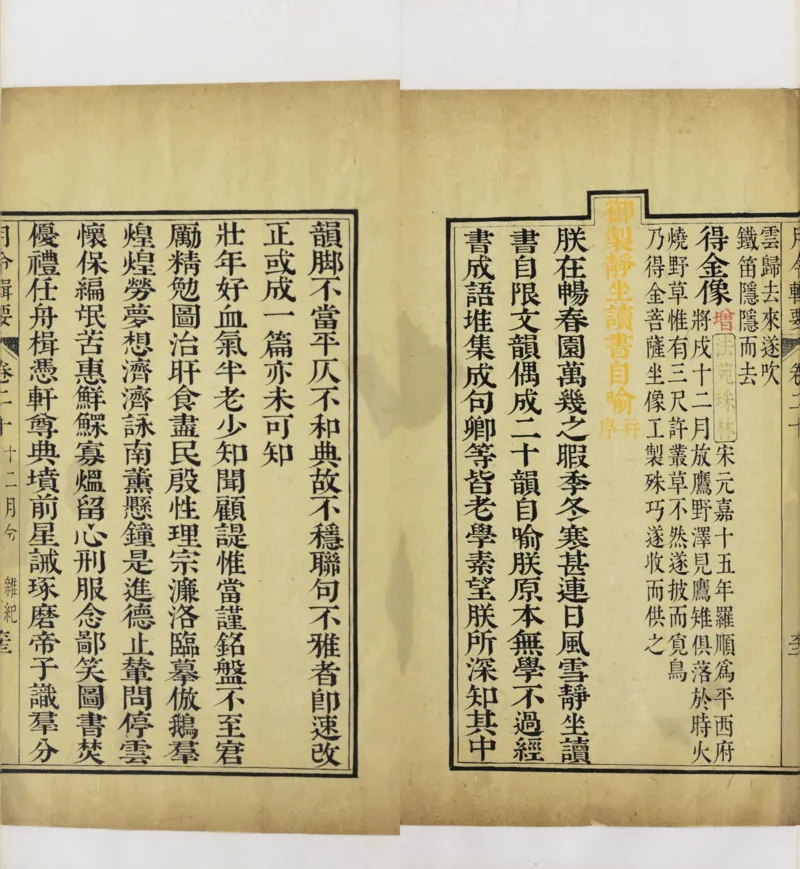 月令輯要 卷二十
雲歸去來遂吹
鐵笛隱隱而去
得金像 增 法苑珠林 宋元嘉十五年羅順爲平西府
將戌十二月放鷹野澤見鷹雉俱落於時火
燒野草惟有三尺許叢草不然遂披而覓鳥
乃得金菩薩坐像工製殊巧遂收而供之
御製靜坐讀書自喻 并序
朕在暢春園萬幾之暇季冬寒甚連日風雪靜坐讀
書自限文韻偶成二十韻自喻朕原本無學不過經
書成語堆集成句卿等皆老學素望朕所深知其中
韻脚不當平仄不和典故不穩聯句不雅者卽速改
正或成一篇亦未可知
壯年好血氣半老少知聞顧諟惟當謹銘盤不至窘
勵精勉圖治旰食盡民殷性理宗濂洛臨摹倣鵝羣
煌煌勞夢想濟濟詠南薰懸鐘是進德止輦問停雲
懷保編氓苦惠鮮鰥寡煴留心刑服念鄙笑圖書焚
優禮任舟楫憑軒尊典墳前星誡琢磨帝子識羣分
月令輯要 卷二十 十二月令 雜紀